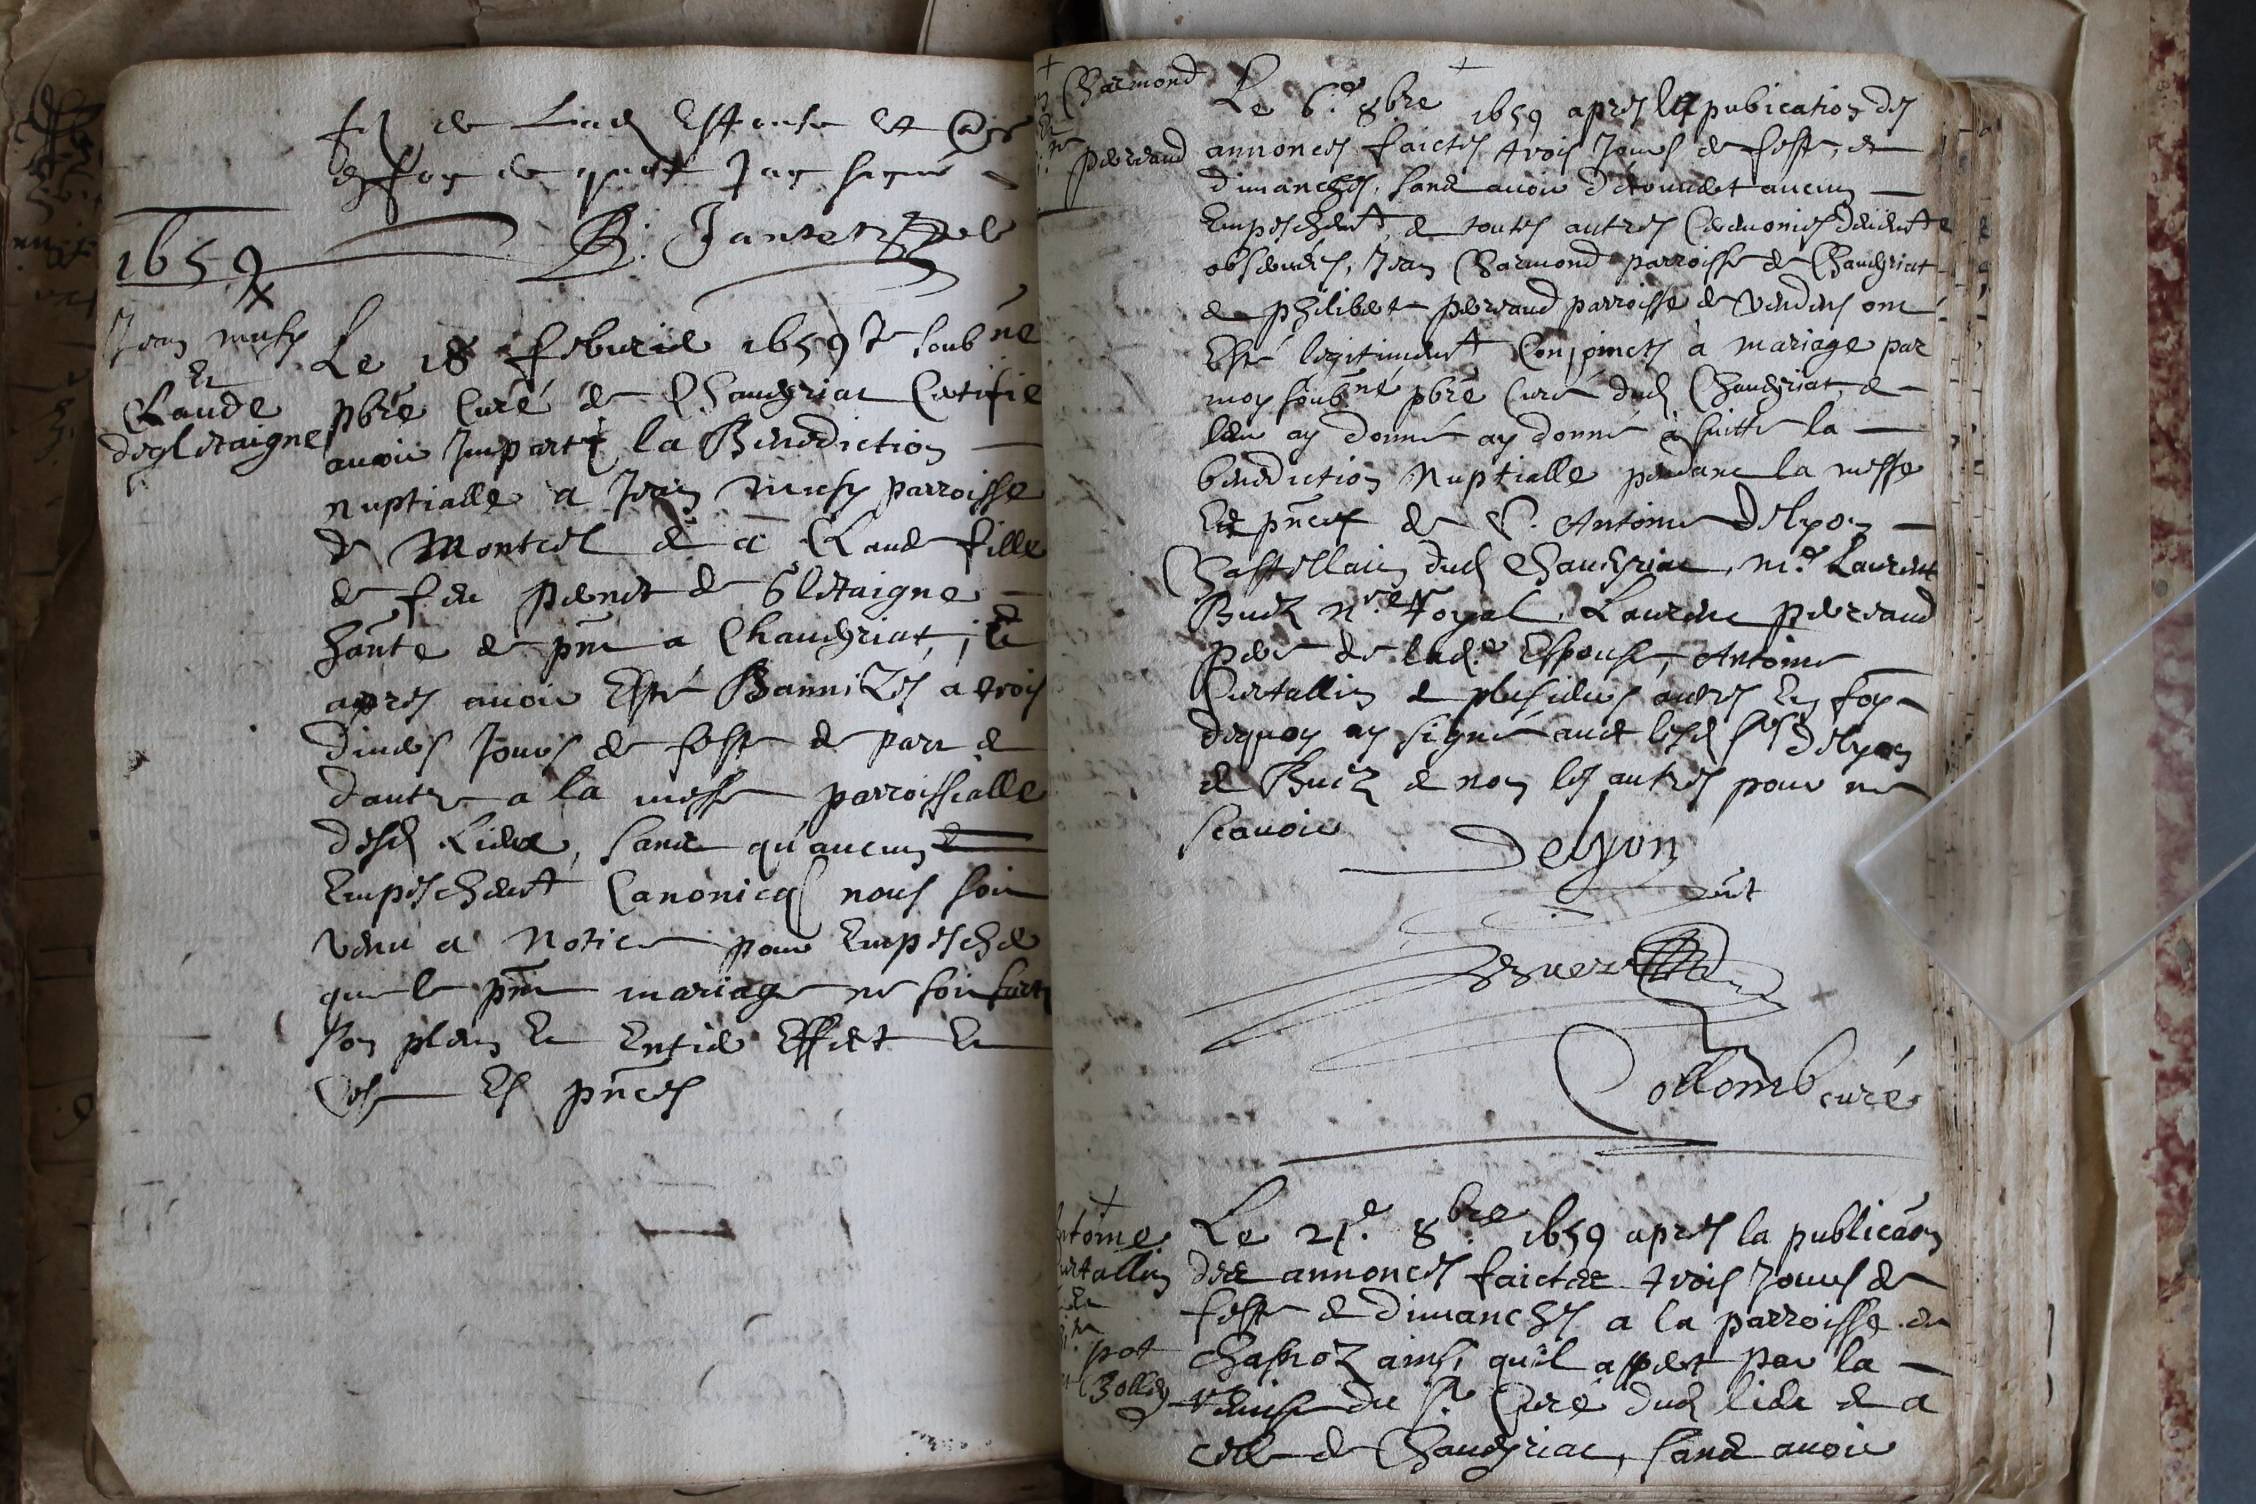 de Lad Espouse et
en foy de quoy Jay signé
B. Jantet
1659
Jean
Et
Claude
degletaigne
Le 18 febvrie 1659 Je soubné
pbre Curé de Chaveyriat Certifie
avoir Imparti la Benediction
nuptialle a Jean parroisse
de Montcel & a Claude fille
de feu pernet de Gletaigne
hante de pnt a Chaveyriat,
apres avoir Esté Bannizés a trois
divers Jours de feste de part &
dautre a la messe parroissialle
desd Lieux, sans qu'aucun
Empeschemt Canonicq nous soit
venu a Notice pour Empescher
que le pnt mariage ne soit
son plein Et Entier Effect Et
Es pnces
Charmond
Et
perreaud
Le 6.e 8bre 1659 apres la pubication des
annonces faictes trois Jours de feste, &
dimanches, sans avoir decouvert aucun
Empeschemt, & toutes autres Ceremonies deuemt
observées, Jean Charmond parroisse de Chaveyriat
& philibert perreaud parroisse de Vendens ont
Esté legitimemt Conjoincts a mariage par
moy soubné pbre Curé dud Chaveyriat, &
leur ay donné ay donné a suitte la
benediction Nuptialle pendant la messe
Es pnces de S. Antoine Delyon
Chastellain dud Chaveyriat, m.e Laurent
Buez nre Royal, Laurent perreaud
pere de lad.e Espouse, Antoine
Curtallin & plusieurs autres En foy
dequoy ay signé avec lesd srs delyon
& Buez & non les autres pour ne
scavoir
Delyon
Buez
Collomb curé
Antoine
Curtallin
Et
pot
Bolley
Le 21.e 8bre 1659 apres la publicaon
des annonces faictes trois Jours de
feste & dimanches a la parroisse de
Chasnoz ainsi qu'il appert par la
remise du sr Curé dud lieu & a
celle de Chaveyriat, sans avoir